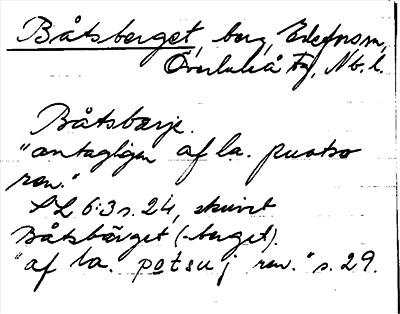 Båtsberget, berg, Edefors sn,
Överluleå tg, Nb. l.
Båtsbärje.
"antagligen af la. puotso
ren."
SL 6:3 s. 24, skrivet
Båtsbärget (-berget).
"af la. potsuj ren." s. 29.